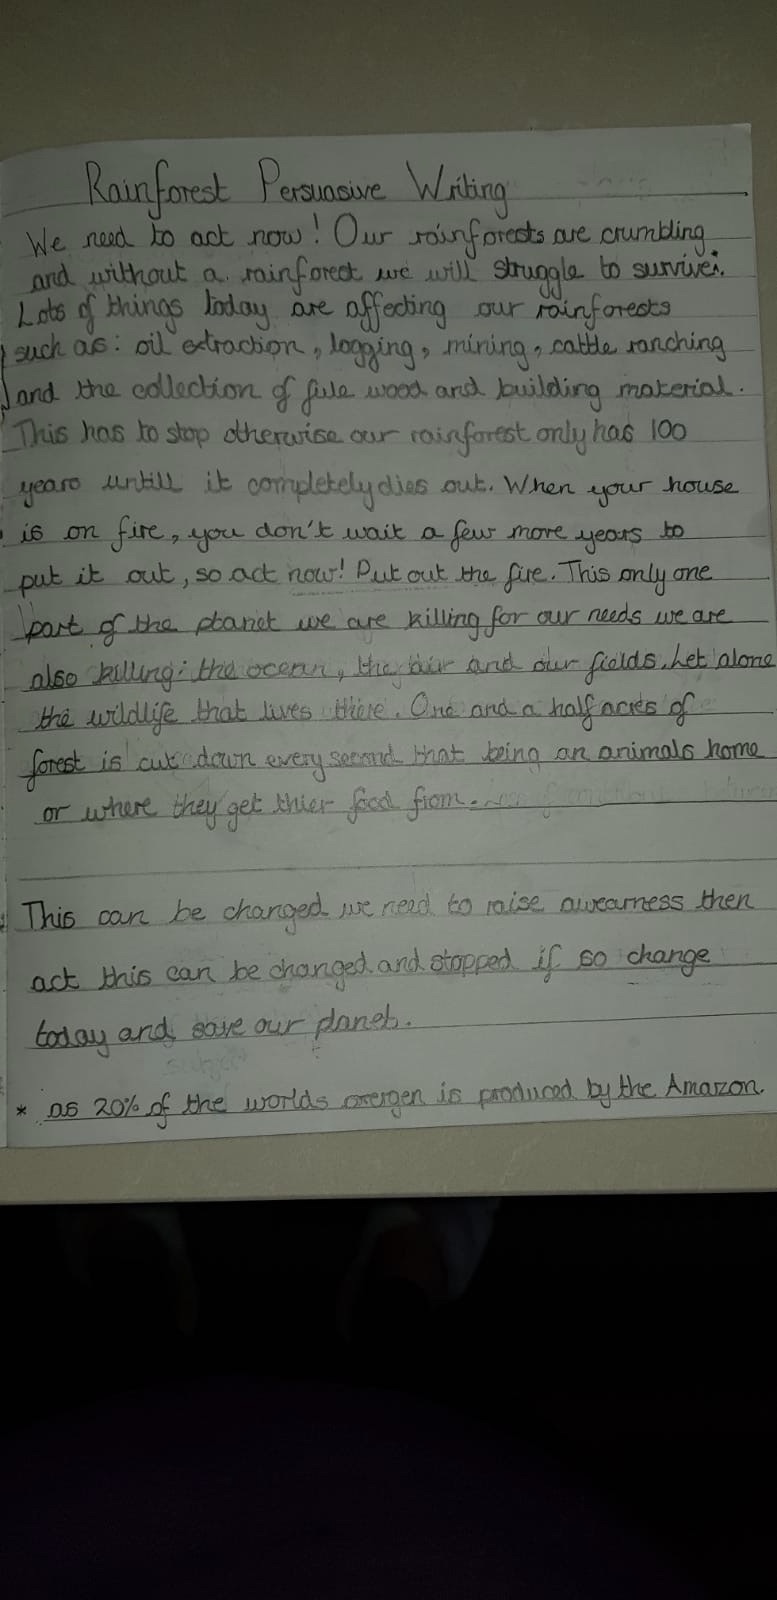 Rainforest Persuasive Writing
We need to act now! Our rainforests are crumbling
and without a rainforest we will struggle to survive.
Lots of things today are affecting our rainforests
such as: oil extraction, logging, mining, cattle ranching
and the collection of fule wood and building material.
This has to stop otherwise our rainforest only has 100
years untill it completely dies out. When your house
is on fire, you don't wait a few more years to
put it out, so act now! Put out the fire. This only one
part of the planet we are killing for our needs we are
also killing: the ocean, the air and our fields. Let alone
the wildlife that lives there. One and a half acres of
forest is cut down every second that being an animals home
or where they get thier food from.
This can be changed we need to raise awearness then
act this can be changed and stopped if so change
today and save our planet.
* as 20% of the worlds oxergen is produced by the Amazon.